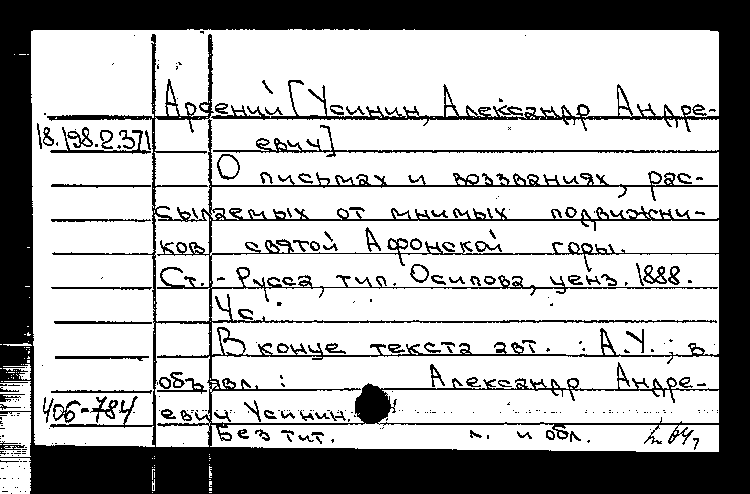 Арсений [Усинин, Александр Андре-
18.198.2.371 евич]
О письмах и воззваниях, рас-
сылаемых от мнимых подвижни-
ков святой Афонской горы.
Ст.-Русса, тип. Осипова, ценз. 1888.
4 с.
В конце текста авт.: А.У.; в
объявл.: Александр Андре-
406-784 евич Усинин.
Без тит. л. и обл.